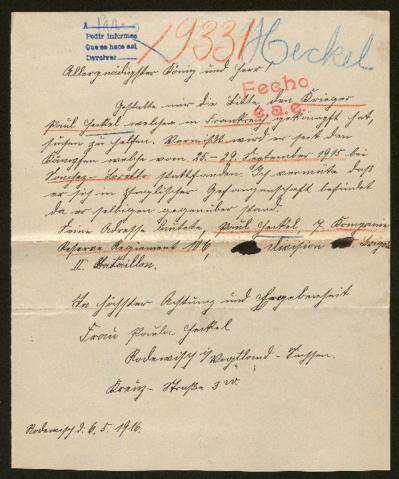 A Paris
Pedir informes
Que se hace así
Devolver
19331 Heckel
Fecho
e.a.e.
Allergnädigster König und Herr,
Gestatte mir die Bitte, den Krieger
Paul Heckel welcher in Frankreich gekämpft hat,
suchen zu helfen. Vermißt wird er seit den
Kämpfen welche vom 25-29. September 1915 bei
Souchez-Loretto stattfanden. Ich vermute daß
er sich in Englischer Gefangenschaft befindet
da er selbigen gegenüber stand.
Seine Adresse lautete, Paul Heckel 7. Kompanie
Reserve Regiment 106, Division
II. Bataillon.
In höchster Achtung und Ergebenheit
Frau Paula Heckel
Rodewisch i/Vogtland-Sachsen.
Kreuz-Straße 3
Rodewisch d. 6.5.1916.